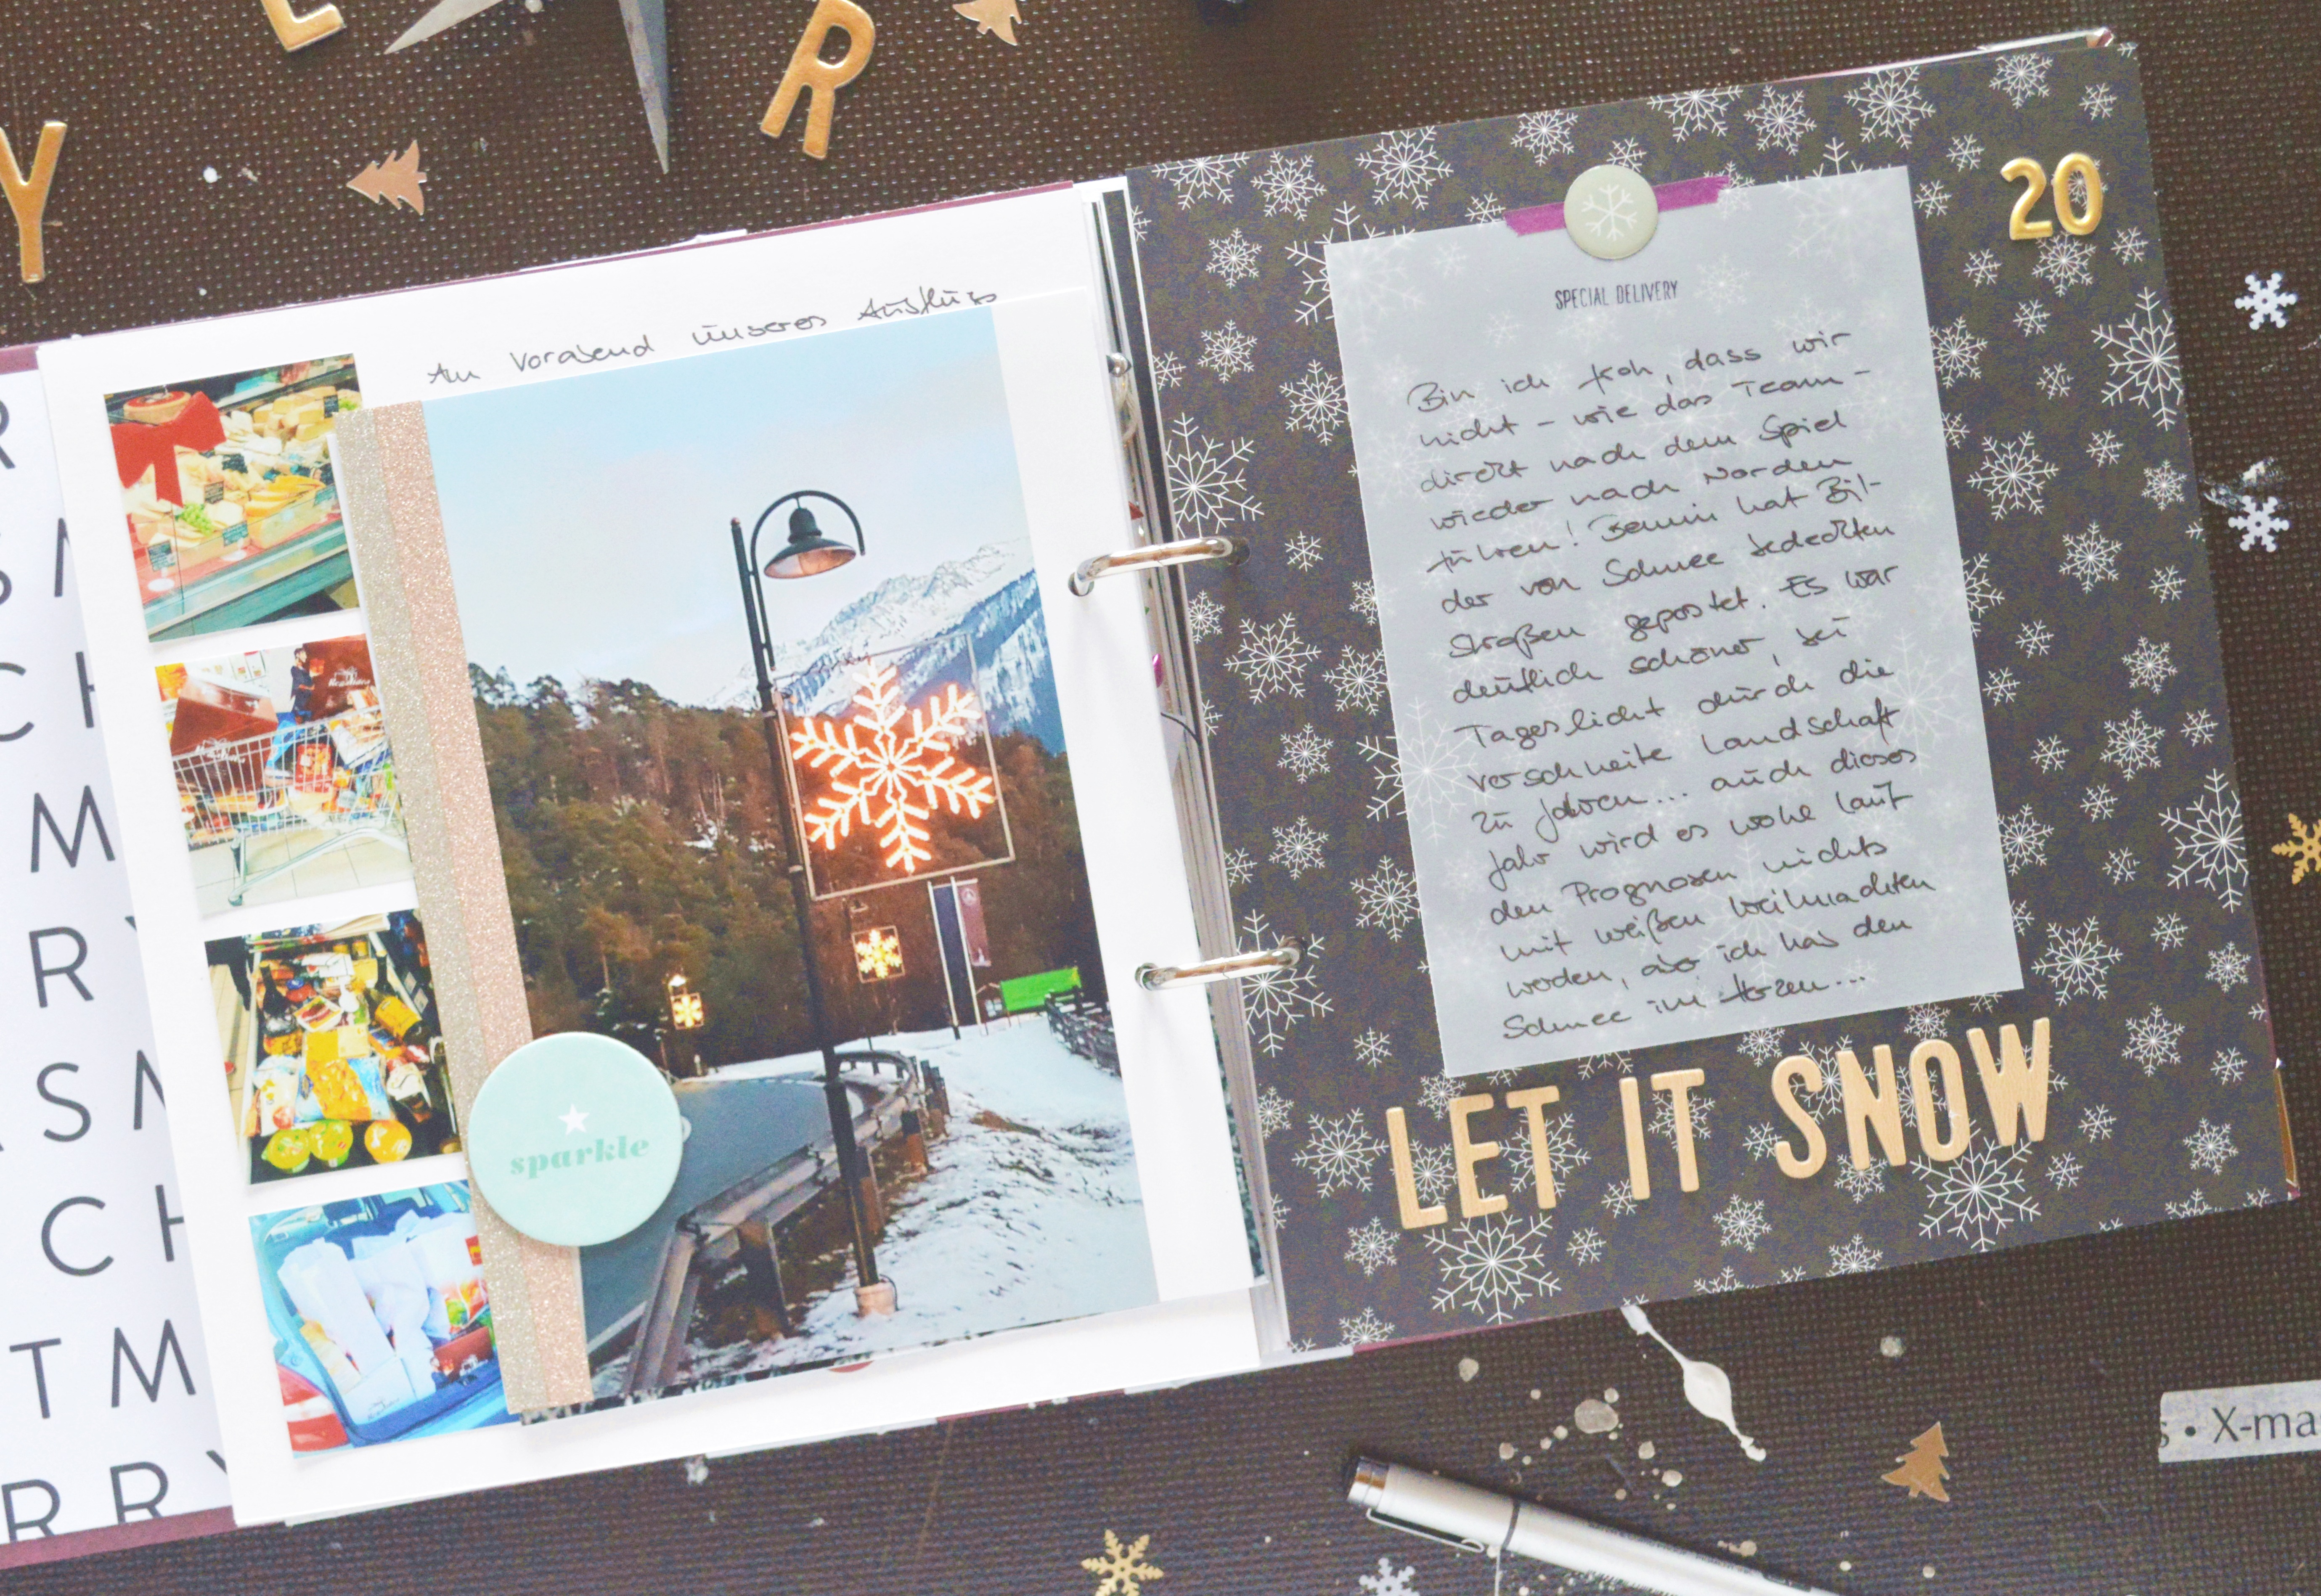 E
R
Y
R
SM
CH
M
RY
SM
CH
TM
RRY
Am Vorabend unseres Ausflugs
sparkle
20
SPECIAL DELIVERY
Bin ich froh, dass wir
nicht - wie das Team -
direkt nach dem Spiel
wieder nach Norden
fuhren! Benni hat Bil-
der von Schnee bedeckten
Straßen gepostet. Es war
deutlich schöner, bei
Tageslicht durch die
verschneite Landschaft
zu fahren... auch dieses
Jahr wird es wohl laut
den Prognosen nichts
mit weißen Weihnachten
werden, aber ich hab den
Schnee im Herzen...
LET IT SNOW
s • X-ma